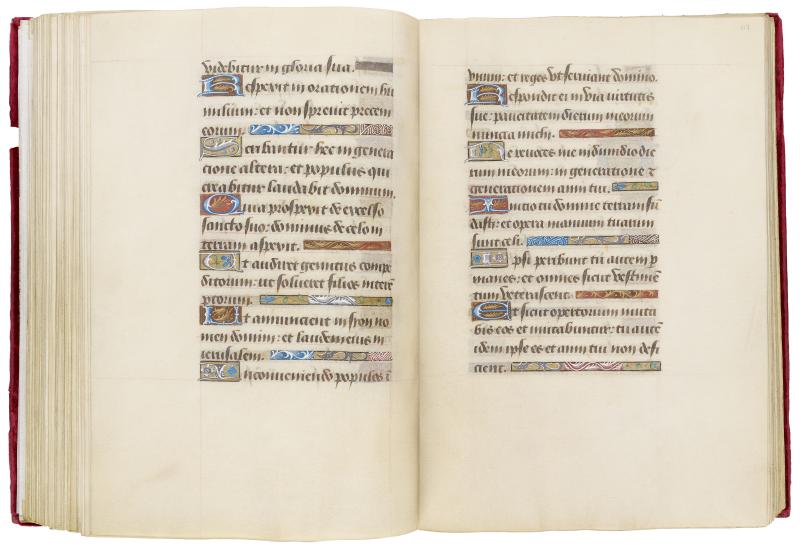 videbitur in gloria sua.
Respexit in orationem hu
milium: et non sprevit precem
eorum.
Scribantur hec in genera
cione altera: et populus qui
creabitur laudabit dominum.
Quia prospexit de excelso
sancto suo: dominus de celo in
terram aspexit.
Ut audiret gemitus compe
ditorum: ut solveret filios interē
ptorum.
Ut annuncient in syon no
men domini: et laudem eius in
ierusalem.
In conveniendo populos ī
unum: et reges ut serviant domino.
Respondit ei in via virtutis
sue: paucitatem dierum meorum
nuncia michi.
Ne revoces me in dimidio die
rum meorum: in generatione ⁊
generationem anni tui.
Inicio tu domine terram fū
dasti: et opera manuum tuarum
sunt celi.
Ipsi peribunt tu autem p
manes: et omnes sicut vestimē
tum veterascent.
Et sicut opertorium muta
bis eos et mutabuntur: tu autē
idem ipse es et anni tui non defi
cient.